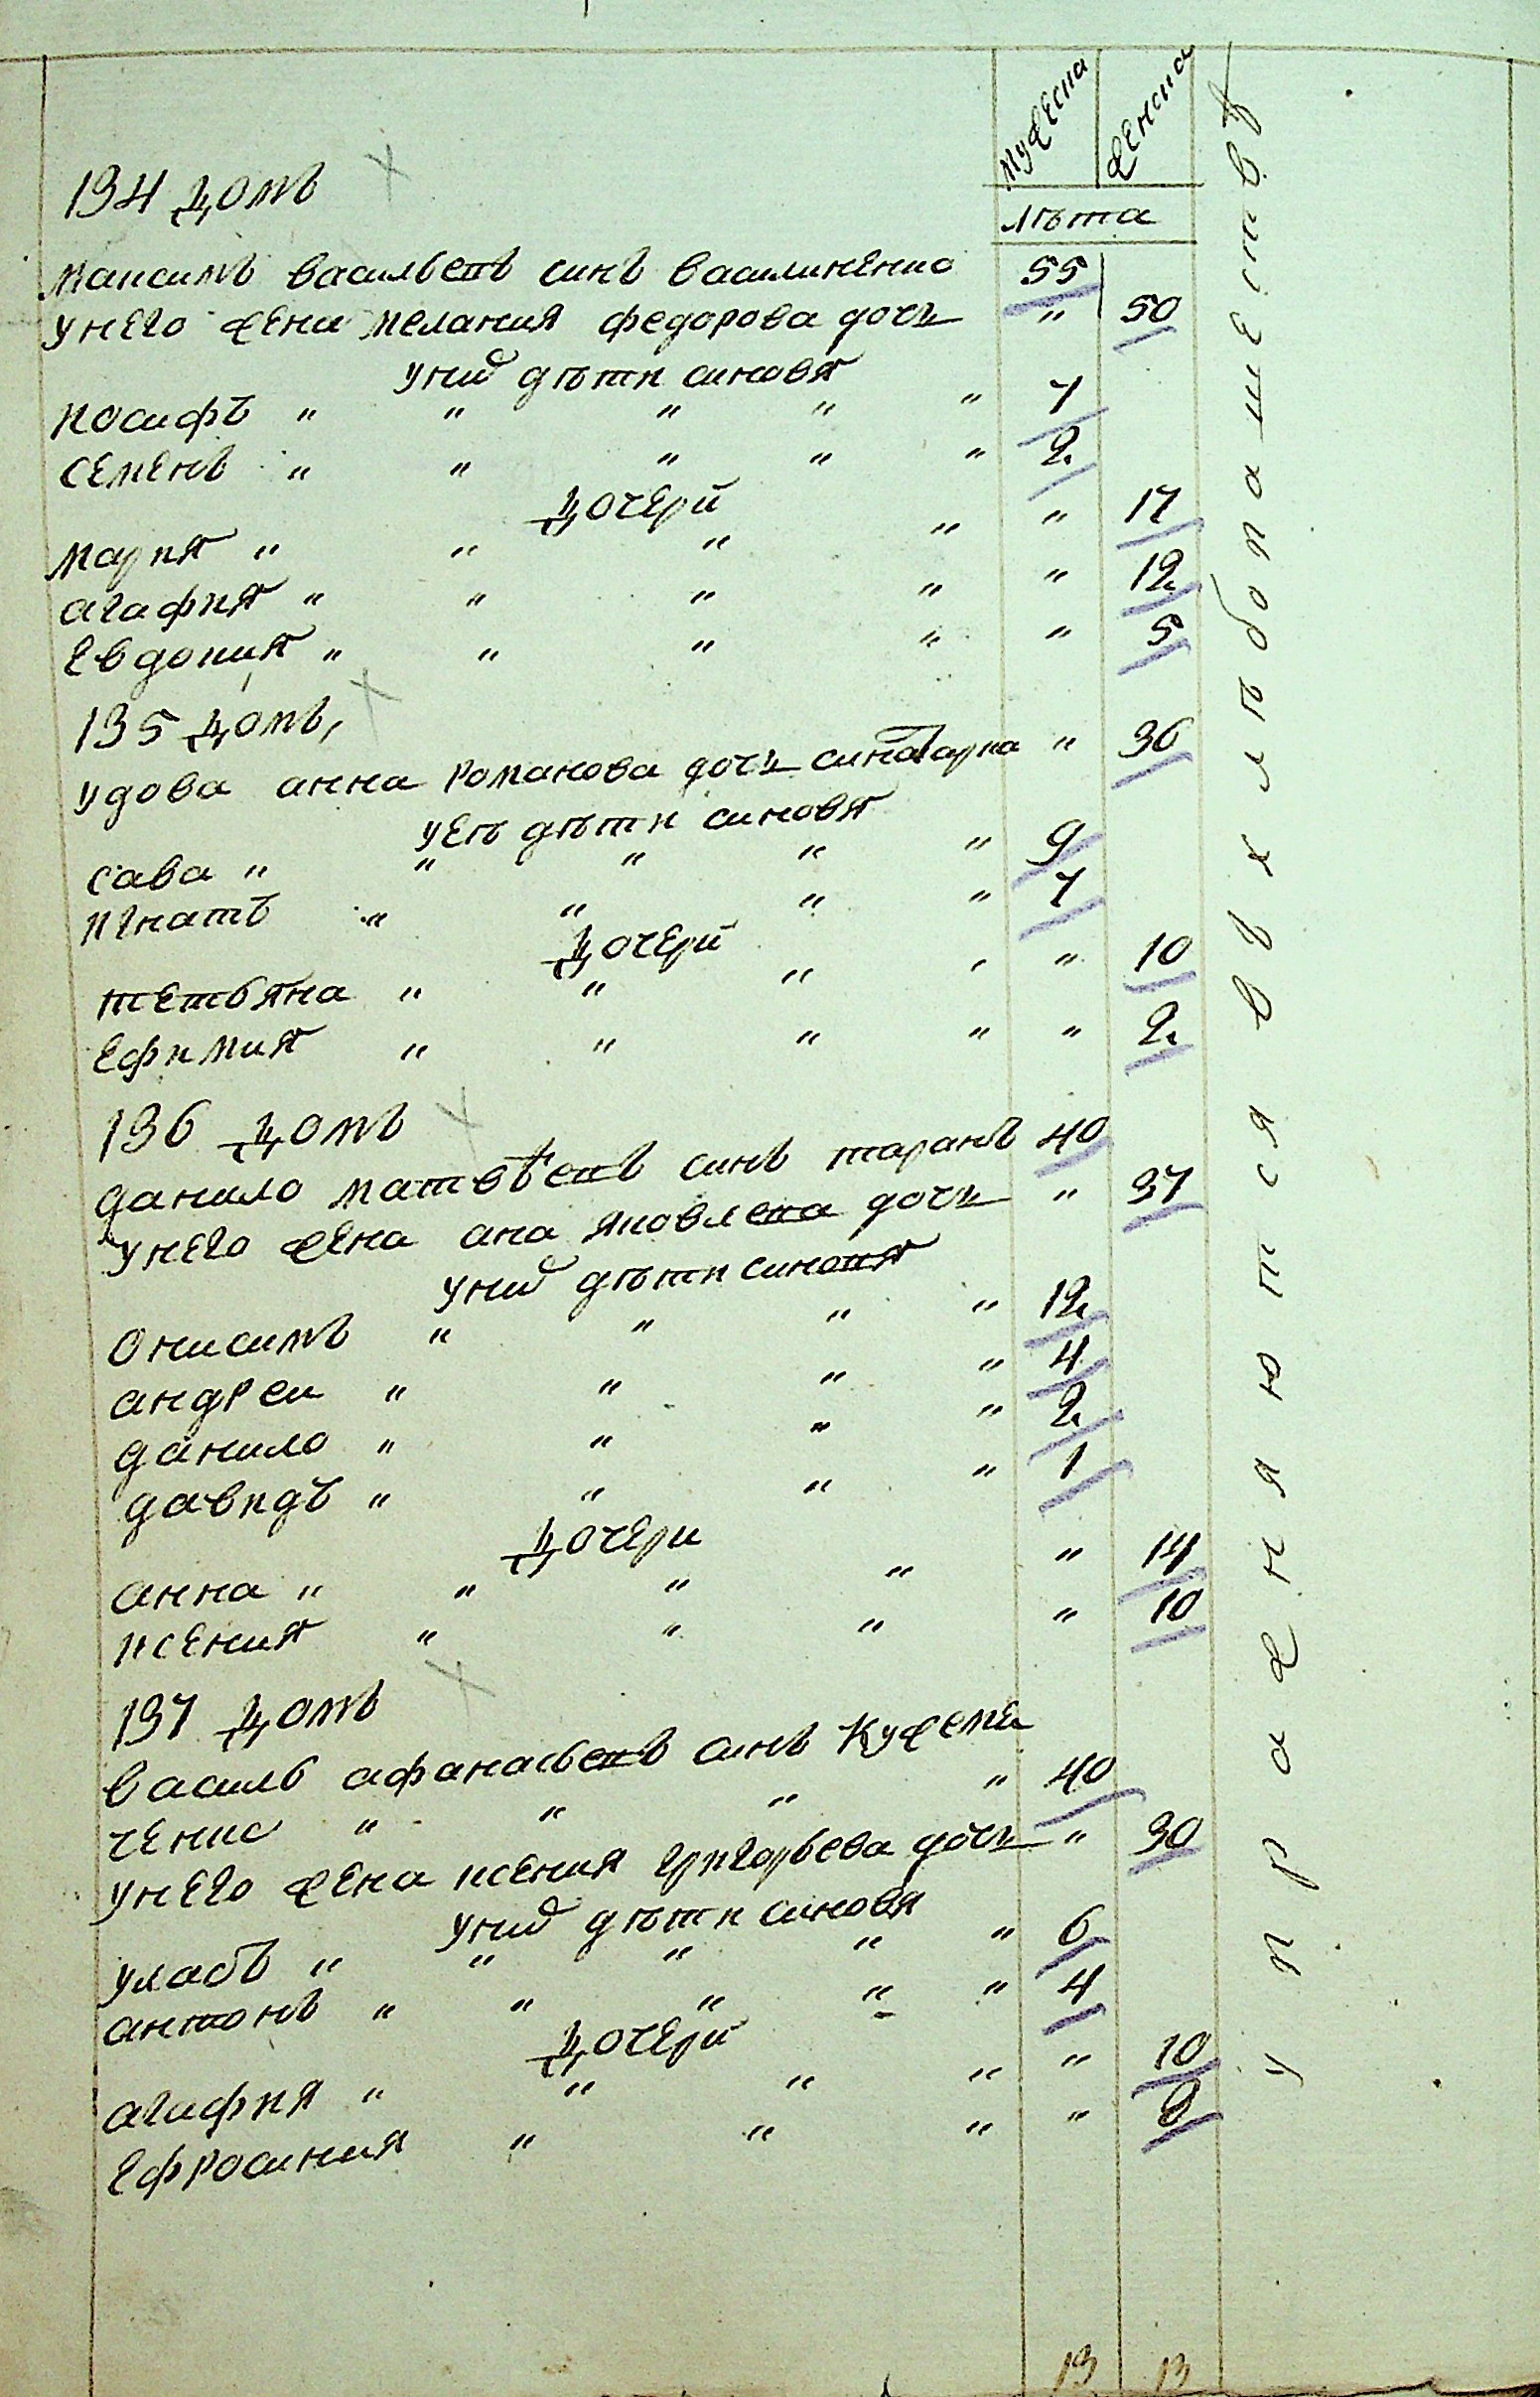 мужеска женска
лѣта
134 домъ
максимъ васильевъ синъ василиненко 55
унего жена мелания федорова дочъ " 50
уних дѣти синовя
иосифъ " " " " " 7
семенъ " " " " " 2
дочери
мария " " " " " 17
агафия " " " " " 12
евдокия " " " " " 5
135 домъ,
удова анна романова дочъ " 36
уеѣ дѣти синовя
сава " " " " " 9
игнатъ " " " " 7
дочери
тетьяна " " " " " 10
ефимия " " " " " 2
136 домъ
данило матвѣевъ синъ таранъ 40
унего жена ана яковлева дочъ " 37
уних дѣти синовя
онисимъ " " " " 12
андреи " " " " 4
данило " " " " 2
давидъ " " " " 1
дочери
анна " " " " " 14
ксения " " " " 10
137 домъ
василь афанасьевъ синъ Кужели
ченко " " " " 40
унего жена ксения григорьева дочъ " 30
уних дѣти синовя
уласъ " " " " " 6
антонъ " " " " " 4
дочери
агафия " " " " " 10
ефросиния " " " " 8
13 13
упражняются въ хлѣбопашествѣ